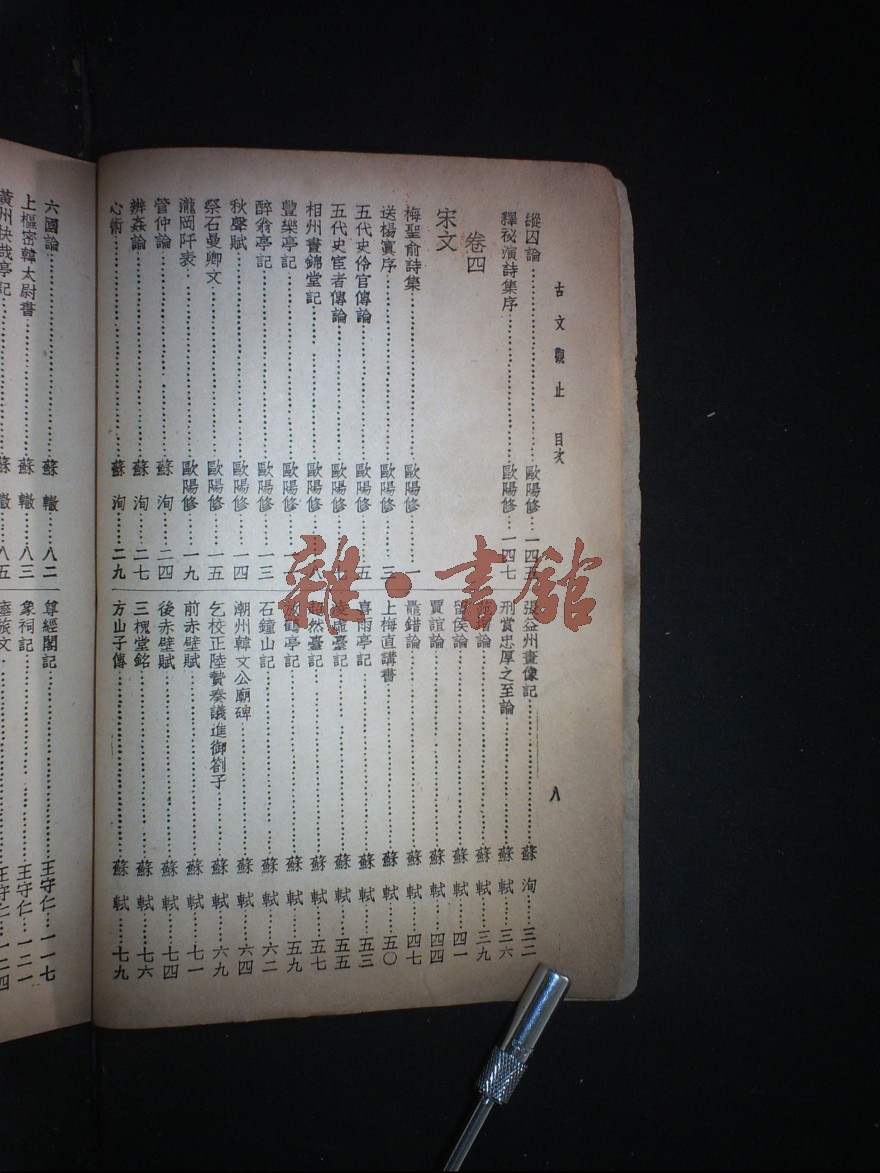 古文觀止 目次
八
縱囚論 歐陽修 一四五
釋祕演詩集序 歐陽修 一四七
卷四
宋文
梅聖俞詩集 歐陽修 一
送楊寘序 歐陽修 三
五代史伶官傳論 歐陽修 五
五代史宦者傳論 歐陽修 七
相州晝錦堂記 歐陽修 八
豐樂亭記 歐陽修
醉翁亭記 歐陽修 一三
秋聲賦 歐陽修 一四
祭石曼卿文 歐陽修 一五
瀧岡阡表 歐陽修 一九
管仲論 蘇洵 二四
辨姦論 蘇洵 二七
心術 蘇洵 二九
張益州畫像記 蘇洵 三二
刑賞忠厚之至論 蘇軾 三六
增論 蘇軾 三九
留侯論 蘇軾 四一
賈誼論 蘇軾 四四
鼂錯論 蘇軾 四七
上梅直講書 蘇軾 五〇
喜雨亭記 蘇軾 五三
凌虛臺記 蘇軾 五五
超然臺記 蘇軾 五七
放鶴亭記 蘇軾 五九
石鐘山記 蘇軾 六二
潮州韓文公廟碑 蘇軾 六四
乞校正陸贄奏議進御劄子 蘇軾 六九
前赤壁賦 蘇軾 七一
後赤壁賦 蘇軾 七四
三槐堂銘 蘇軾 七六
方山子傳 蘇軾 七九
六國論 蘇轍 八二
上樞密韓太尉書 蘇轍 八三
黃州快哉亭記 蘇轍 八五
尊經閣記 王守仁 一一七
象祠記 王守仁 一二一
瘞旅文 王守仁 一二四
雜·書館